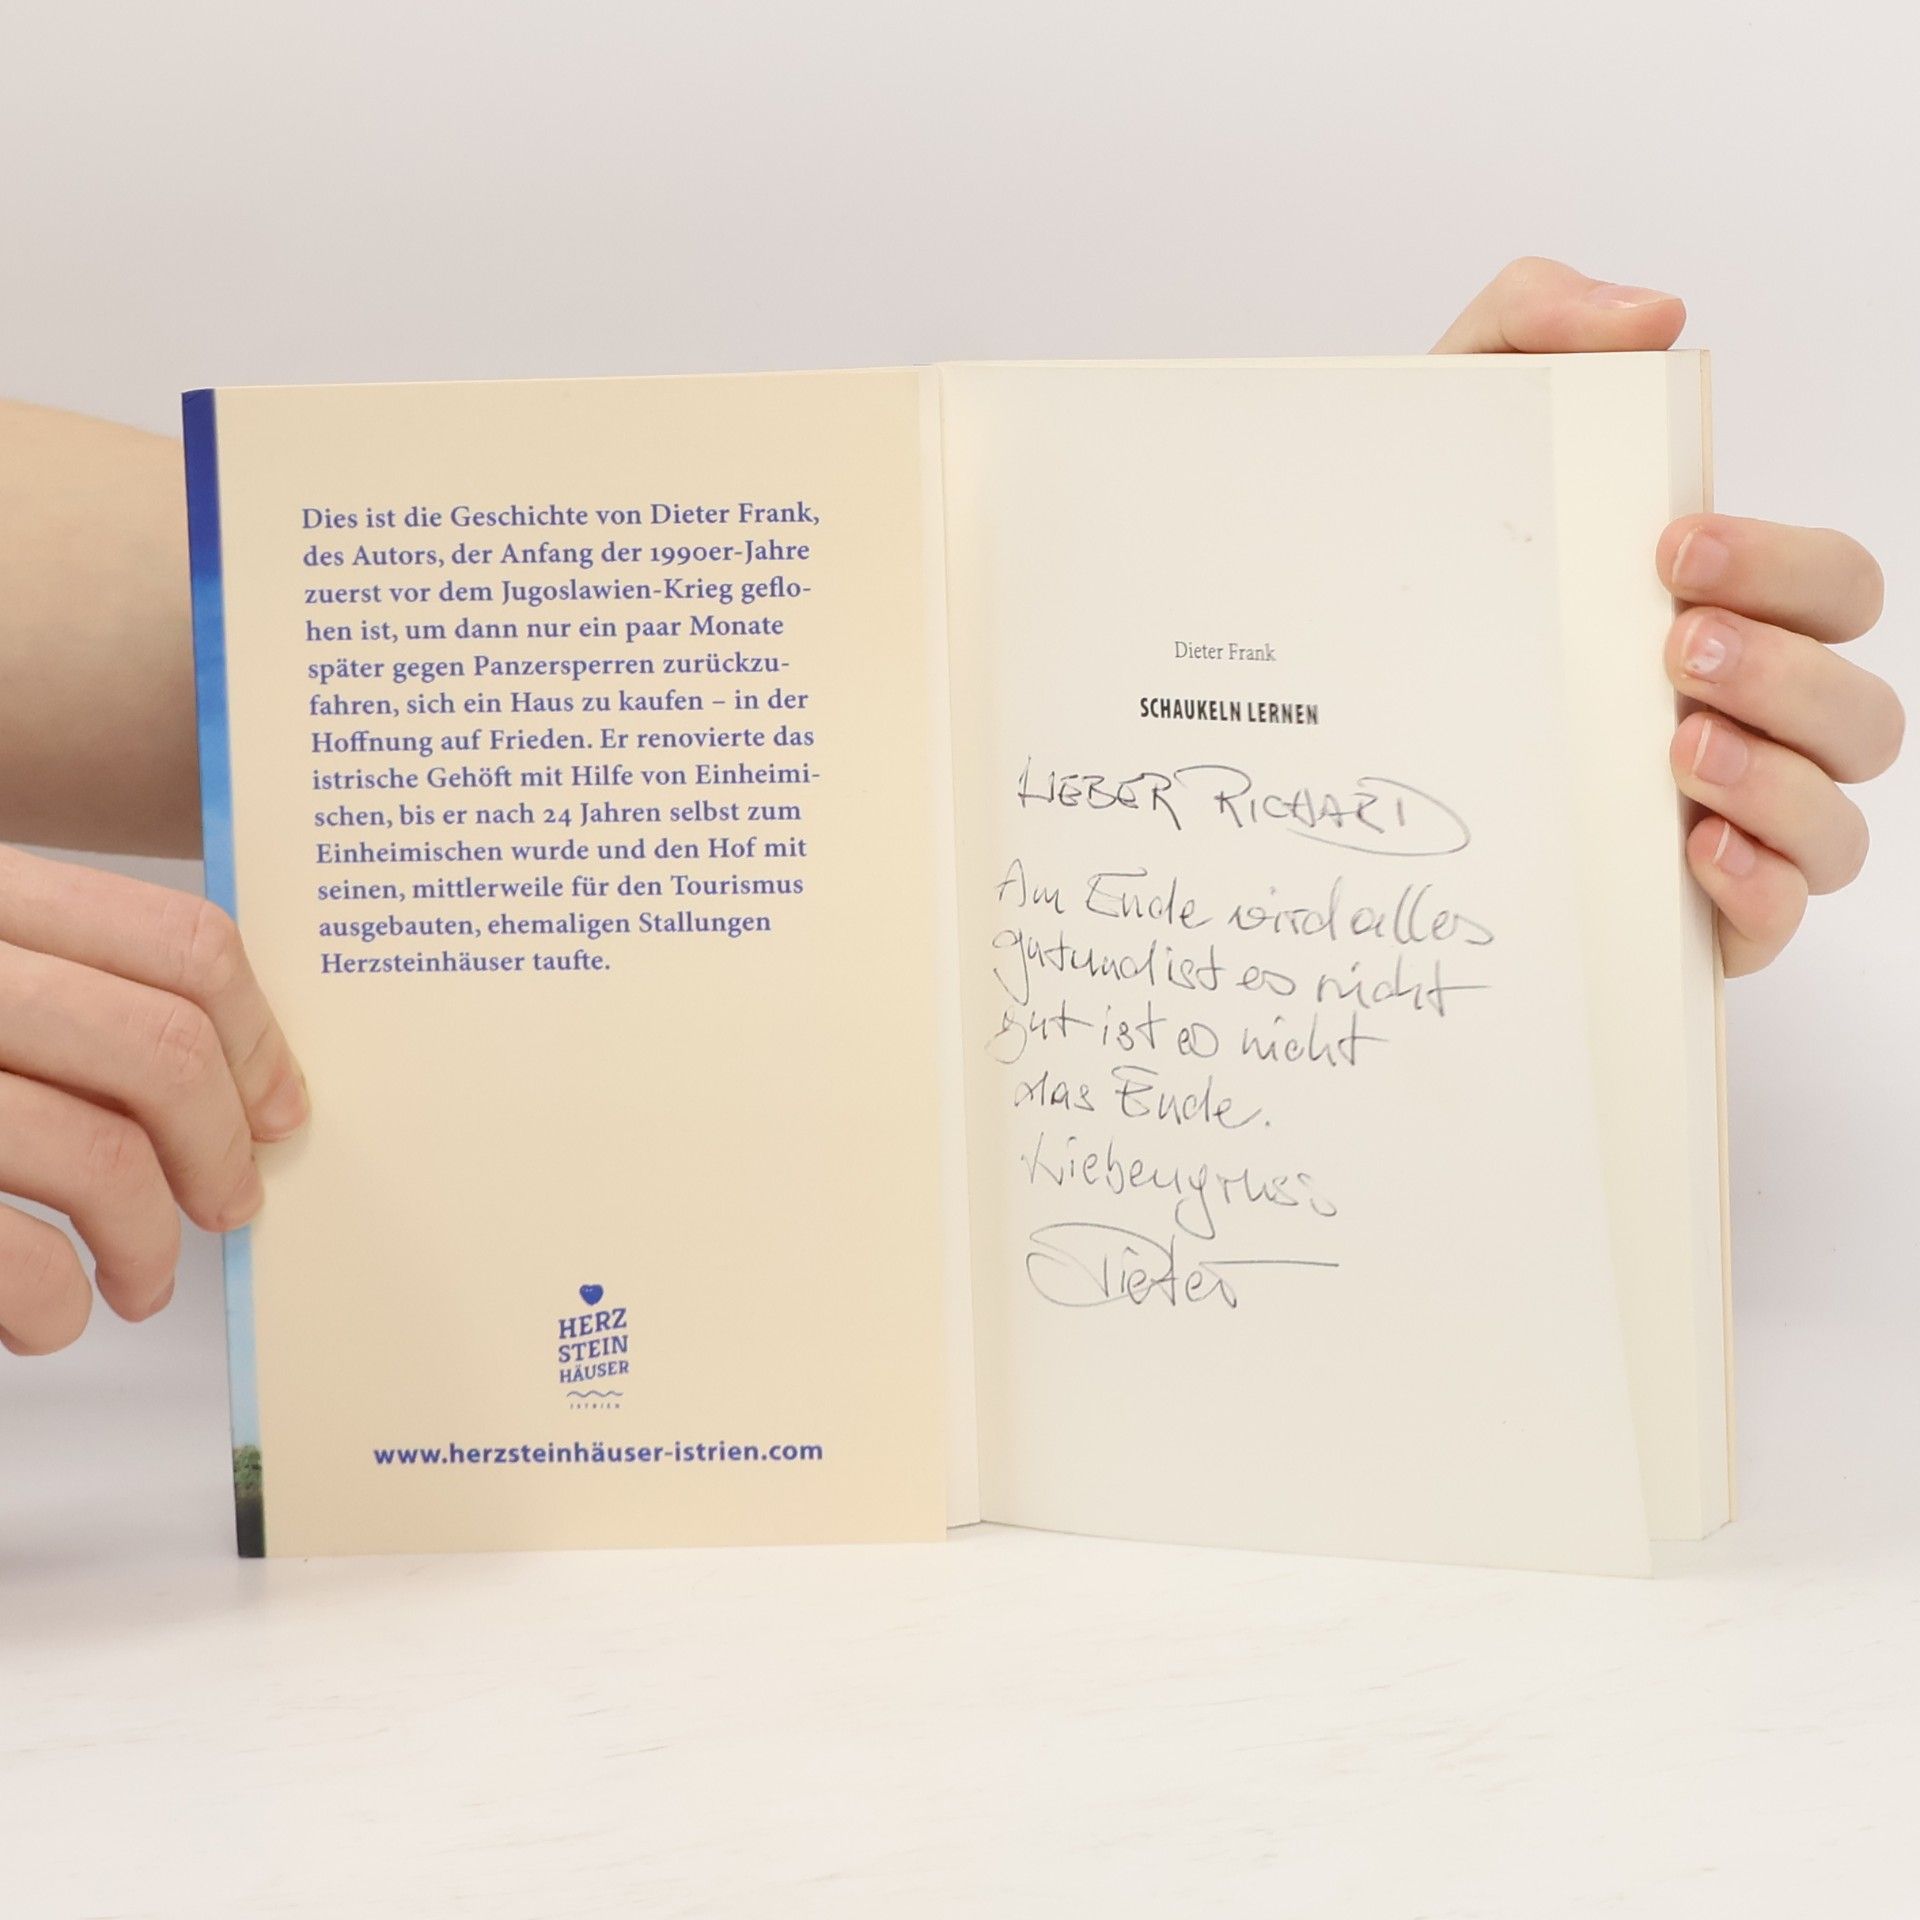 Dies ist die Geschichte von Dieter Frank,
des Autors, der Anfang der 1990er-Jahre
zuerst vor dem Jugoslawien-Krieg geflo-
hen ist, um dann nur ein paar Monate
später gegen Panzersperren zurückzu-
fahren, sich ein Haus zu kaufen – in der
Hoffnung auf Frieden. Er renovierte das
istrische Gehöft mit Hilfe von Einheimi-
schen, bis er nach 24 Jahren selbst zum
Einheimischen wurde und den Hof mit
seinen, mittlerweile für den Tourismus
ausgebauten, ehemaligen Stallungen
Herzsteinhäuser taufte.
HERZ
STEIN
HÄUSER
ISTRIEN
www.herzsteinhäuser-istrien.com
Dieter Frank
SCHAUKELN LERNEN
LIEBER RICHARD
Am Ende wird alles
gut und ist es nicht
gut ist es nicht
das Ende.
Liebengruss
Dieter